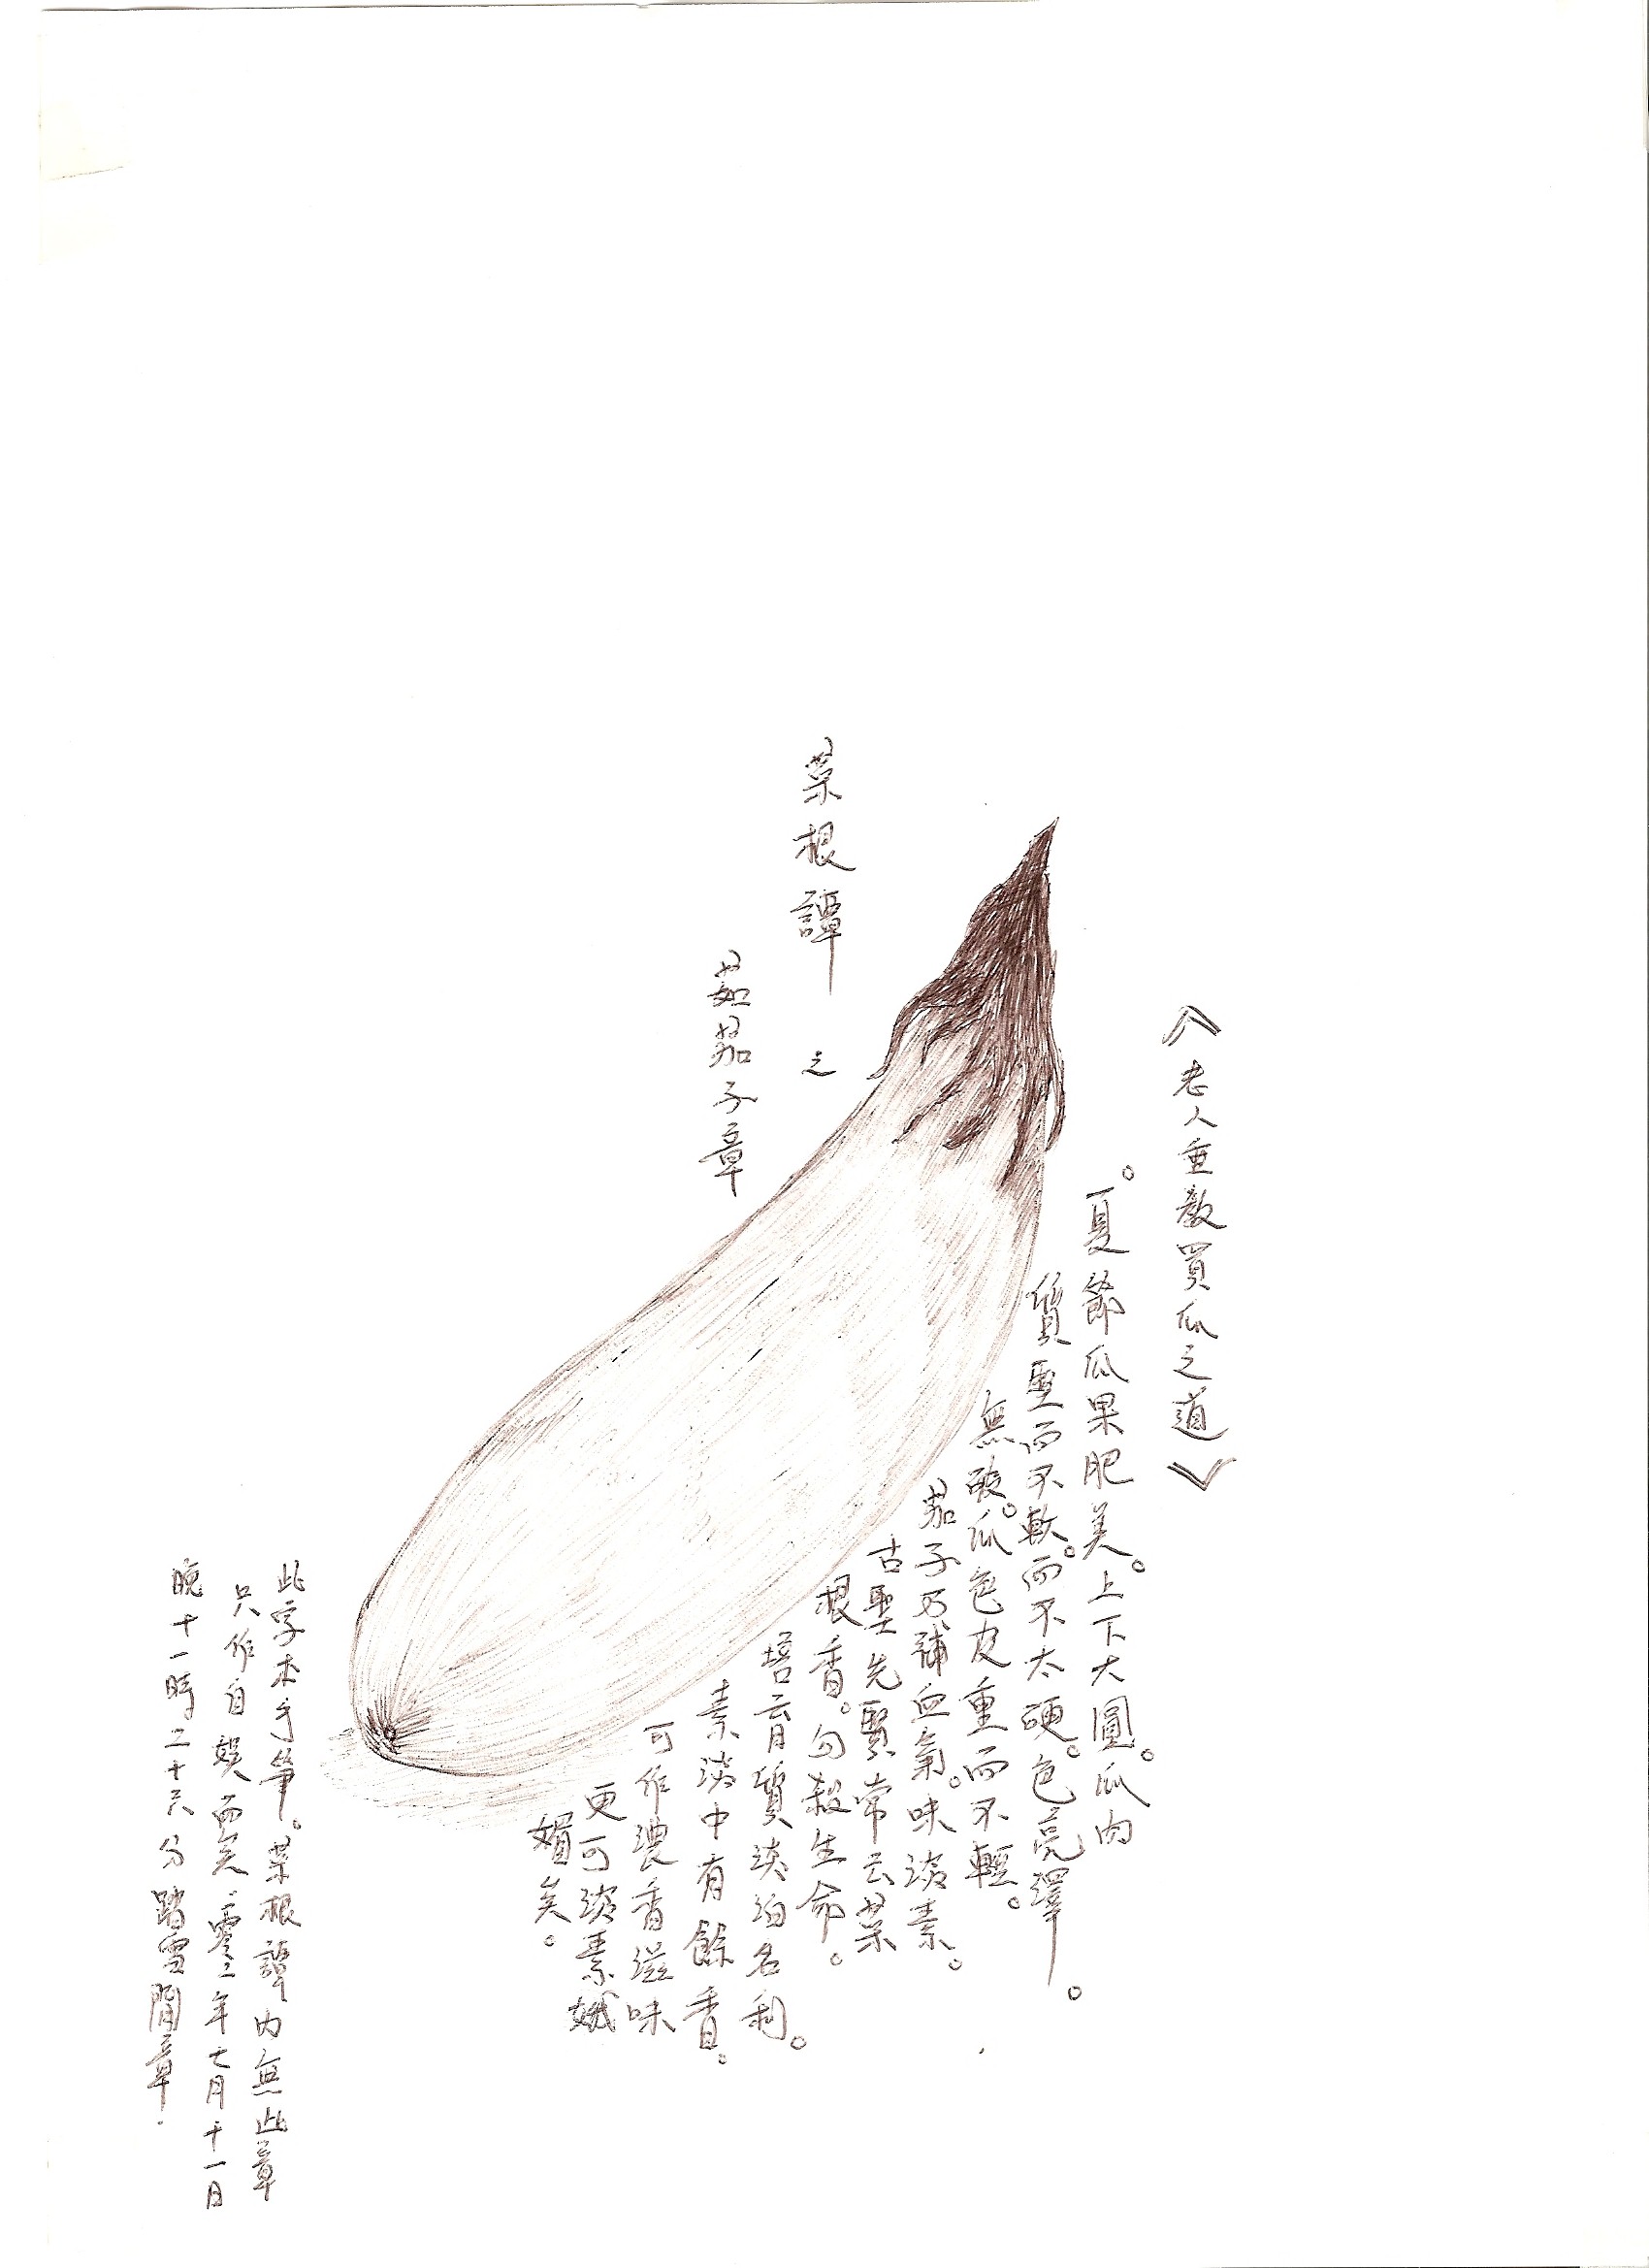 菜根譚之
茹茄子章
《老人重教買瓜之道》
。夏節瓜果肥美。上下大圓。瓜肉
質堅而不軟。而不太硬。色亮澤。
無破。瓜色皮重而不輕。
茄子巧補血氣。味淡素。
古聖先賢常云菜
根香。勿殺生命。
培育質淡泊名利。
素淡中有餘香。
可作濃香滋味
更可淡素
媚矣。
此字本手筆。菜根譚內無此章
只作自娛而矣。二零零二年七月十一日
晚十一時二十六分踏雪閒章.